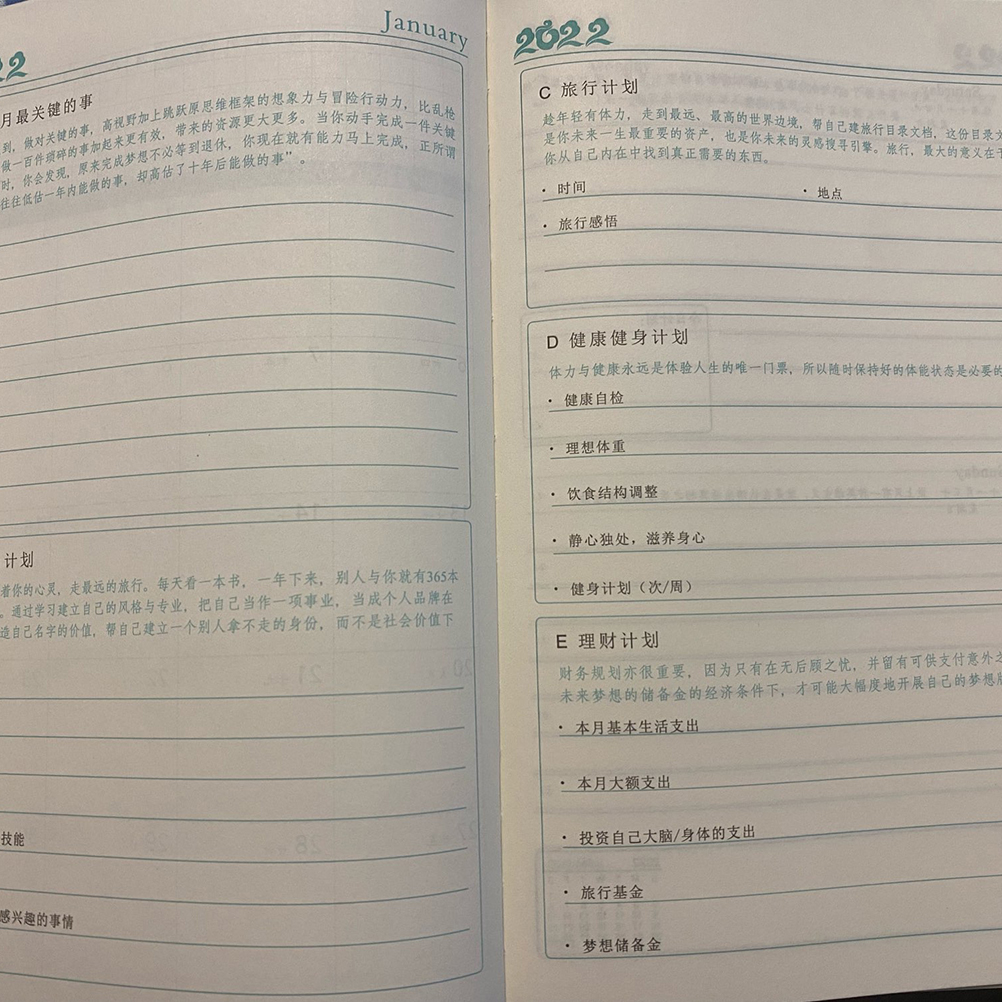 January
月最关键的事
到，做对关键的事，高视野加上跳跃原思维框架的想象力与冒险行动力，比乱枪
做一百件琐碎的事加起来更有效，带来的资源更大更多。当你动手完成一件关键
时，你会发现，原来完成梦想不必等到退休，你现在就有能力马上完成，正所谓
往往低估一年内能做的事，却高估了十年后能做的事”。
计划
着你的心灵，走最远的旅行。每天看一本书，一年下来，别人与你就有365本
。通过学习建立自己的风格与专业，把自己当作一项事业，当成个人品牌在
造自己名字的价值，帮自己建立一个别人拿不走的身份，而不是社会价值下
技能
感兴趣的事情
2022
C 旅行计划
趁年轻有体力，走到最远、最高的世界边境，帮自己建旅行目录文档，这份目录
是你未来一生最重要的资产，也是你未来的灵感搜寻引擎。旅行，最大的意义在于
你从自己内在中找到真正需要的东西。
· 时间 · 地点
· 旅行感悟
D 健康健身计划
体力与健康永远是体验人生的唯一门票，所以随时保持好的体能状态是必要的
· 健康自检
· 理想体重
· 饮食结构调整
· 静心独处，滋养身心
· 健身计划（次/周）
E 理财计划
财务规划亦很重要，因为只有在无后顾之忧，并留有可供支付意外
未来梦想的储备金的经济条件下，才可能大幅度地开展自己的梦想
· 本月基本生活支出
· 本月大额支出
· 投资自己大脑/身体的支出
· 旅行基金
· 梦想储备金